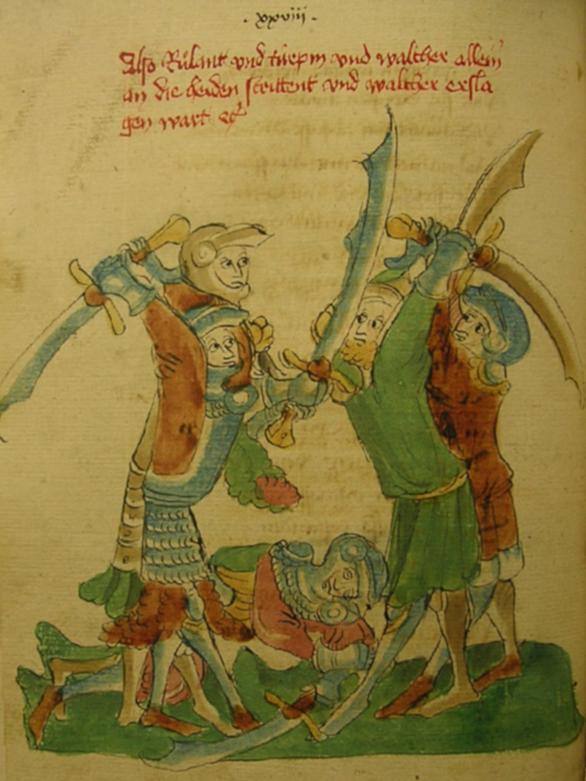 ·xxviii·
Also Růlant vnd turpin vnd walther allein
an die heiden strittent vnd walther ersla
gen wart etc